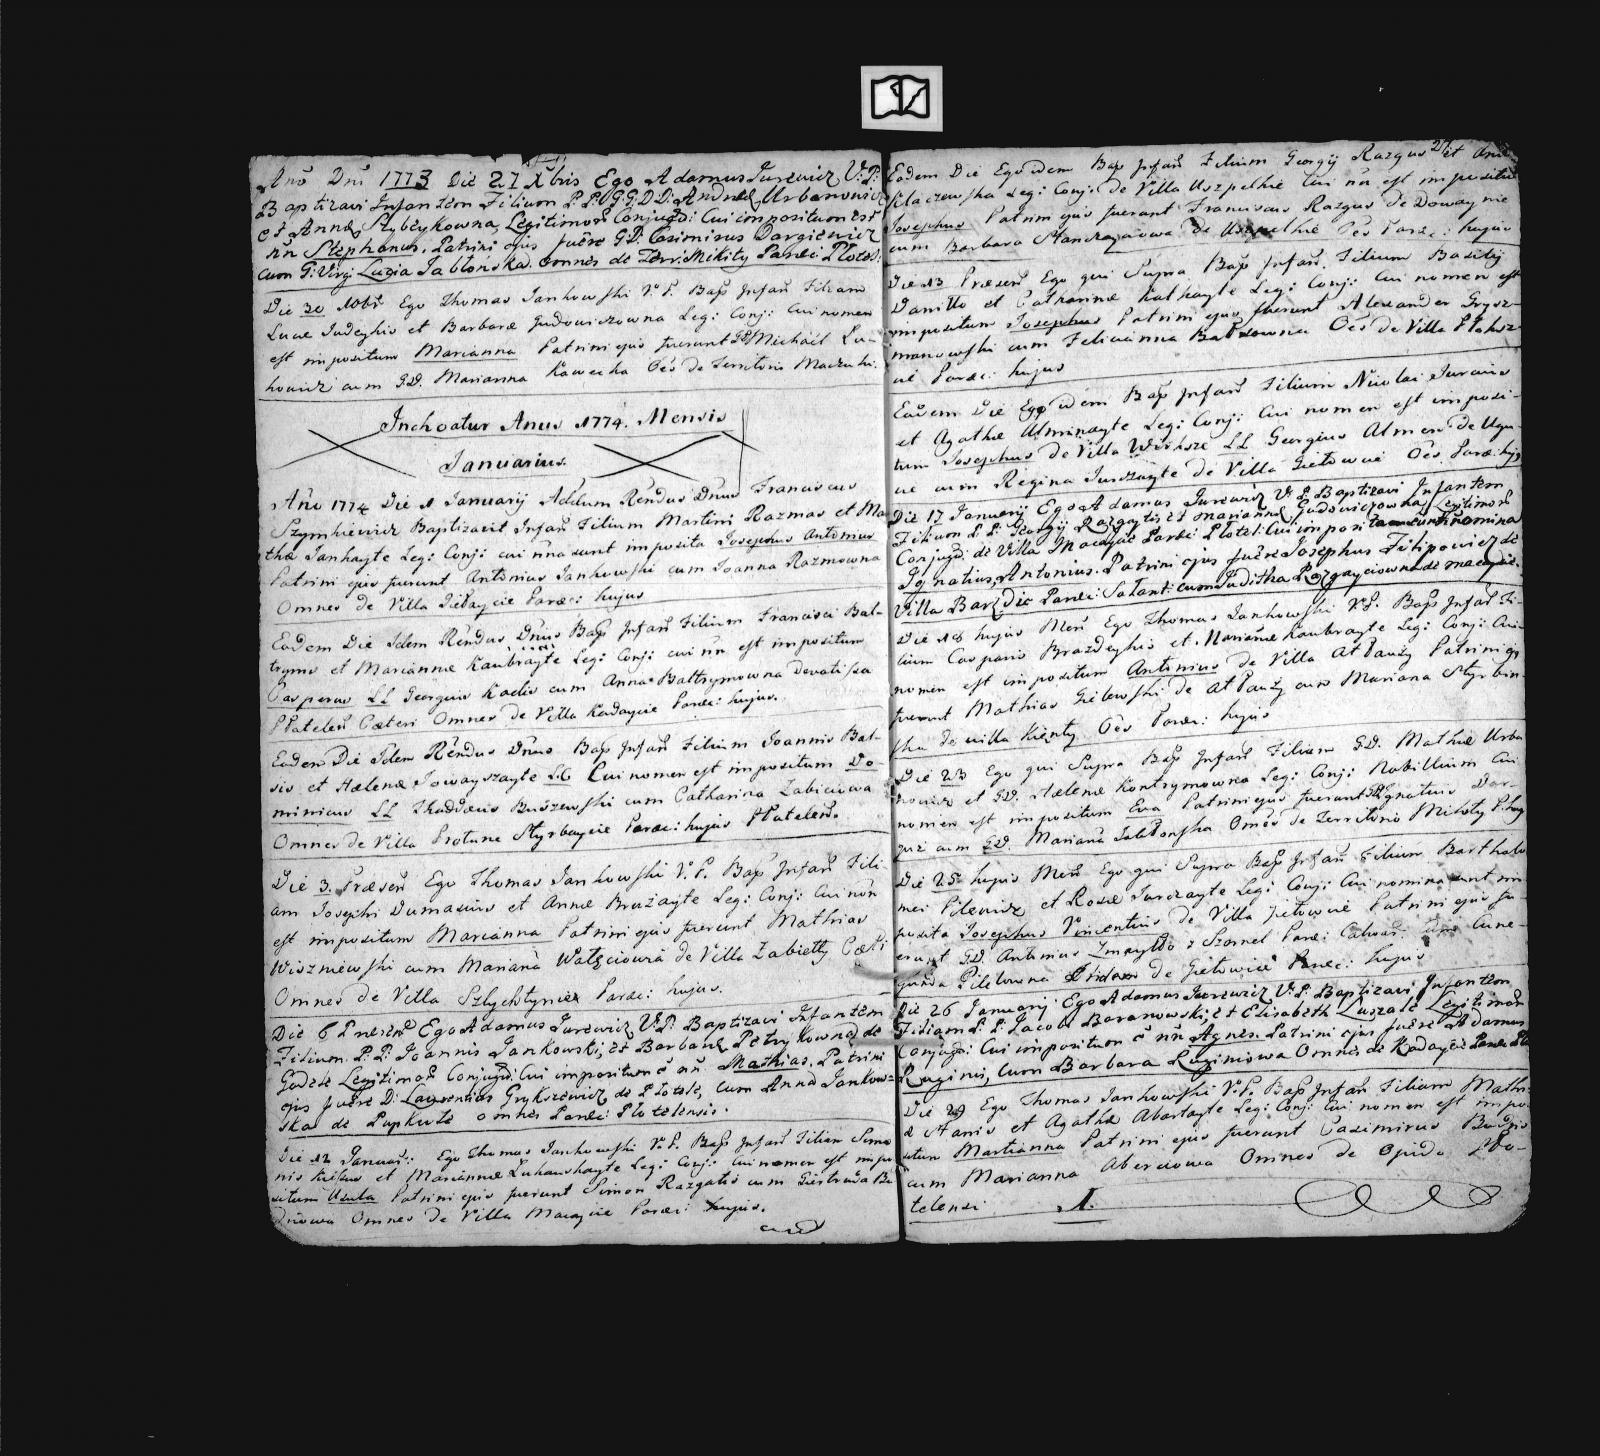 Año Dni 1773 Die 27 Xbris Ego Adamus Jurewicz V: P:
Baptizavi Infantem Filium P.P. GG.DD: Andreæ Urbanowicz
et Annæ Stybrykowna Legitimoȓ Conjugũ: Cui impositum est
nñ Stephanus. Patrini ejus fuêre GD: Casimirus Dargiewicz
cum G: Virg: Lucia Jabłońska. omnes de Terr: Mikity Paræci Plotel:
Die 30 10br̃ Ego Thomas Jankowski V. P. Bap̃ Infañ Filiam
Lucæ Judeykis et Barbaræ Gudowiczowna Leg: Conj: cui nomen
est impositum Marianna Patrini ejus fuerunt GD Michaël Lu-
kowicz cum GD. Marianna Kawecka Oẽs de Territorio
Inchoatur Anus 1774. Mensis
Januarius.
Año 1774 Die 1 Januarij Adđum Rẽndus Dñus Franciscus
Szymkiewicz Baptizavit Infañ Filium Martini Razmas et Ma
thæ Jankayte Leg: Conj: cui nña sunt imposita Josephus Antonius
Patrini ejus fuerunt Antonius Jankowski cum Joanna Razmowna
Omnes de Villa Paræc: hujus
Eadem Die Idem Rẽndus Dñus Bap̃ Infañ Filium Francisci Bal-
trymo et Mariannæ Kaubrayte Leg: Conj: cui nñ est impositum
Casperus LL Georgius Kadis cum Anna Baltrymowna Devotissa
Plateleñ Cæteri Omnes de Villa Kadaycie Paræc: hujus.
Eadem Die Idem Rẽndus Dñus Bap̃ Infañ Filium Joannis Bal-
sis et Helenæ Jowayszayte LC Cui nomen est impositum Do
minicus LL Thaddæus Buszewski cum Catharina Zabiciowa
Omnes de Villa Protune Styrbaycie Paræc: hujus Plateleñ.
Die 3. Præseñ Ego Thomas Jankowski V. P. Bap̃ Infañ Fili
am Josephi Dumasius et Annæ Bružayte Leg: Conj: Cui nõn
est impositum Marianna Patrini ejus fuerunt Mathias
Wiszniewski cum Mariana de Villa Zabietly Cæti
Omnes de Villa Szlychtynie Paræc: hujus.
Die 6 Præseñ Ego Adamus Jurewicz V: P. Baptizavi Infantem
Filium P.P. Joannis Jankowski, et Barbaræ Petrykowna de
Godele Legitimoȓ Conjugũ. Cui impositum ẽ nñ Mathias. Patrini
ejus fuêre D: Laurentius Grykszewicz de Plotele, cum Anna Jankow=
ska de Papkule omnes Paræci Plotelensis.
Die 12 Januař: Ego Thomas Jankowski V. P. Bap̃ Infañ Filiam Simo
nis et Mariannæ Łukauskayte Leg: Conj: Cui nomen est impo
situm Usula Patrini ejus fuerunt Simon Razgatis cum Giertruda Bu
Omnes de Villa Macuycie Paræc: hujus.
27
Eadem Die Ego idem Bap̃ Infañ Filium Georgij Razgus et
Leg: Conj: de Villa Uszpelkie Cui nñ est impositũ
Josephus Patrini ejus fuerunt Franciscus Razgus de Dowaynie
cum Barbara de Uszpelkie Oẽs Paræc: hujus
Die 13 Præseñ Ego qui Supra Bap̃ Infañ. Filium Basilij
Danillo et Catharinæ Leg: Conj: Cui nomen est
impositum Josephus Patrini ejus fuerunt Alexander Grysz-
manowski cum Feliciana Oẽs de Villa
Paræc: hujus
Eadem Die Ego idem Bap̃ Infañ Filium Nicolai Juracis
et Agathæ Alminayte Leg: Conj: Cui nomen est imposi-
tum Josephus de Villa Wirksze LL Georgius Almen de
cum Regina Jurczayte de Villa Gietowcie Oẽs Paræ: huj9
Die 17 Januarij Ego Adamus Jurewicz V: P. Baptizavi Infantem
Filium P.P. Georgij Razgaytis et Mariannæ Gudowiczowna Legitimoȓ
Conjugũ. de Villa Macuycie Paræci Plotel: Cui imposita sunt nomina
Ignatius, Antonius. Patrini ejus fuêre Josephus Filipowicz de
Villa Barzdzie Paræci Salant: cum Juditha Razgayciowna de Macuycie.
Die 18 hujus Meñ Ego Thomas Jankowski V. P. Bap̃ Infañ Fi-
lium Casparis Brazdeykis et Mariannæ Kaubrayte Leg: Conj: Cui
nomen est impositum Antonius de Villa Patrini ejs
fuerunt Mathias Gilewski de cum Mariana Styrbin-
ska de villa Oẽs Paræc: hujus
Die 23 Ego qui Supra Bap̃ Infañ Filiam GD. Mathiæ Urba
nowicz et GD. Helenæ Kontrymowna Leg: Conj: Nobillium Cui
nomen est impositum Eva Patrini ejus fuerunt GD Ignatius Dar-
giz cum GD. Mariana Jabłońska Omẽs de Territorio Mikity P. huj
Die 25 hujus Meñ Ego qui Supra Bap̃ Infañ Filium Bartholo
mei Pilewicz et Rosæ Jurczayte Leg: Conj: Cui nomina sunt im
posita Josephus Vincentius de Villa Gietowcie Patrini ejus fu
erunt GD. Antonius z Szarnel Paræc: Calwar: cum Cune-
gunda Pilewna de Gietowcie Paræc: hujus
Die 26 Januarij Ego Adamus Jurewicz V: P. Baptizavi Infantem
Filiam P.P. Jacobi Baranowski, et Elisabeth Luszale Legitimoȓ
Conjugũ: Cui impositum ẽ nñ Agnes. Patrini ejus fuêre Adamus
Ruginis, cum Barbara Ruginiowa Omnes de Kadaycie Paræci Plo
Die 29 Ego Thomas Jankowski V. P. Bap̃ Infañ Filiam Mathi
æ Stanis et Agathæ Abartayte Leg: Conj: Cui nomen est impo
situm Martianna Patrini ejus fuerunt Casimirus
cum Marianna Aberciowa Omnes de Opido Plo-
telensi